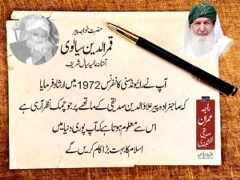 حضرت خواجہ پیر
قمر الدین سیالوی
آستانہ عالیہ سیال شریف
آپ نے راولپنڈی کانفرنس 1972 میں ارشاد فرمایا
کہ صاحبزادہ پیر علاؤالدین صدیقی کے ماتھے پر جو چمک نظر آ رہی ہے
اس سے معلوم ہوتا ہے کہ آپ پوری دنیا میں
اسلام کا بہت بڑا کام کریں گے
عمران